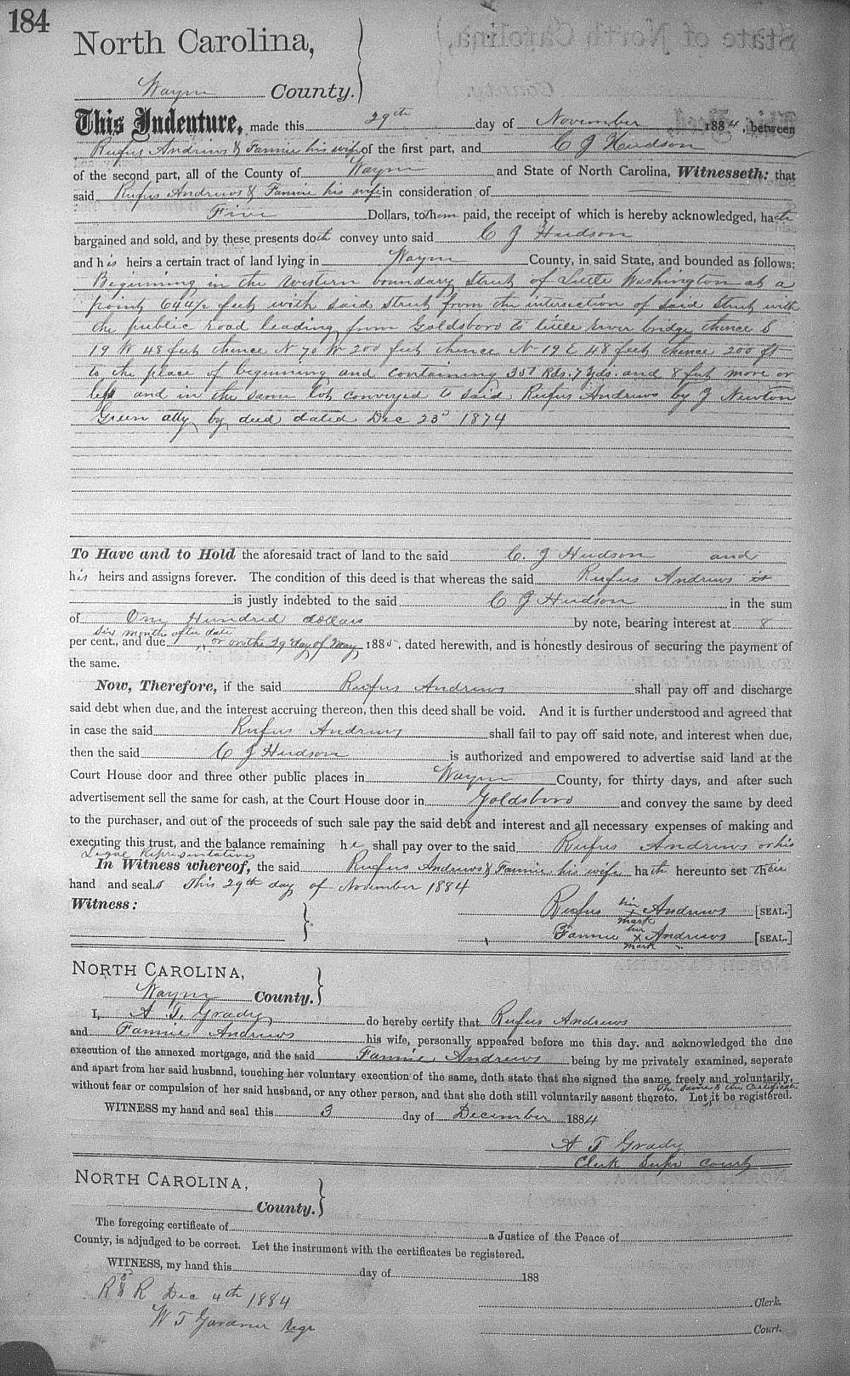 184
North Carolina,
Wayne County.
This Indenture, made this 29th day of November 1884, between
Rufus Andrews & Fannie his wife of the first part, and C J Hudson
of the second part, all of the County of Wayne and State of North Carolina, Witnesseth: that
said Rufus Andrews & Fannie his wife in consideration of
Five Dollars, to them paid, the receipt of which is hereby acknowledged, hath
bargained and sold, and by these presents doth convey unto said C J Hudson
and his heirs a certain tract of land lying in Wayne County, in said State, and bounded as follows:
Beginning in the western boundary Street of Little Washington at a
point 644½ feet with said Street from the intersection of said Street with
the public road leading from Goldsboro to little river bridge thence S
19 W 48 feet thence N 70 W 200 feet thence N 19 E 48 feet thence 200 ft
to the place of beginning and containing 35 Rds. 7 yds. and 8 feet more or
less and in the same lot conveyed to said Rufus Andrews by J Newton
Green atty by deed dated Dec 23d 1874
To Have and to Hold the aforesaid tract of land to the said C. J Hudson and
his heirs and assigns forever. The condition of this deed is that whereas the said Rufus Andrews is
is justly indebted to the said C J Hudson in the sum
of One Hundred dollars by note, bearing interest at 8
six months after date
per cent., and due or on the 29 day of May 1885, dated herewith, and is honestly desirous of securing the payment of
the same.
Now, Therefore, if the said Rufus Andrews shall pay off and discharge
said debt when due, and the interest accruing thereon, then this deed shall be void. And it is further understood and agreed that
in case the said Rufus Andrews shall fail to pay off said note, and interest when due,
then the said C J Hudson is authorized and empowered to advertise said land at the
Court House door and three other public places in Wayne County, for thirty days, and after such
advertisement sell the same for cash, at the Court House door in Goldsboro and convey the same by deed
to the purchaser, and out of the proceeds of such sale pay the said debt and interest and all necessary expenses of making and
executing this trust, and the balance remaining he shall pay over to the said Rufus Andrews or his
Legal Representatives
In Witness whereof, the said Rufus Andrews & Fannie his wife hath hereunto set their
hand and seals This 29th day of November 1884
Witness:
Rufus his x mark Andrews [SEAL.]
Fannie her x mark Andrews [SEAL.]
NORTH CAROLINA,
Wayne County.
I, A. T. Grady, do hereby certify that Rufus Andrews
and Fannie Andrews his wife, personally appeared before me this day. and acknowledged the due
execution of the annexed mortgage, and the said Fannie Andrews being by me privately examined, seperate
and apart from her said husband, touching her voluntary execution of the same, doth state that she signed the same freely and voluntarily,
without fear or compulsion of her said husband, or any other person, and that she doth still voluntarily assent thereto. Let it be registered.
WITNESS my hand and seal this 3 day of December 1884
A T Grady
Clerk Supr Court
NORTH CAROLINA,
County.
The foregoing certificate of a Justice of the Peace of
County, is adjudged to be correct. Let the instrument with the certificates be registered.
WITNESS, my hand this day of 188
R & R Dec 4th 1884
W T Gardner Regr
Clerk.
Court.